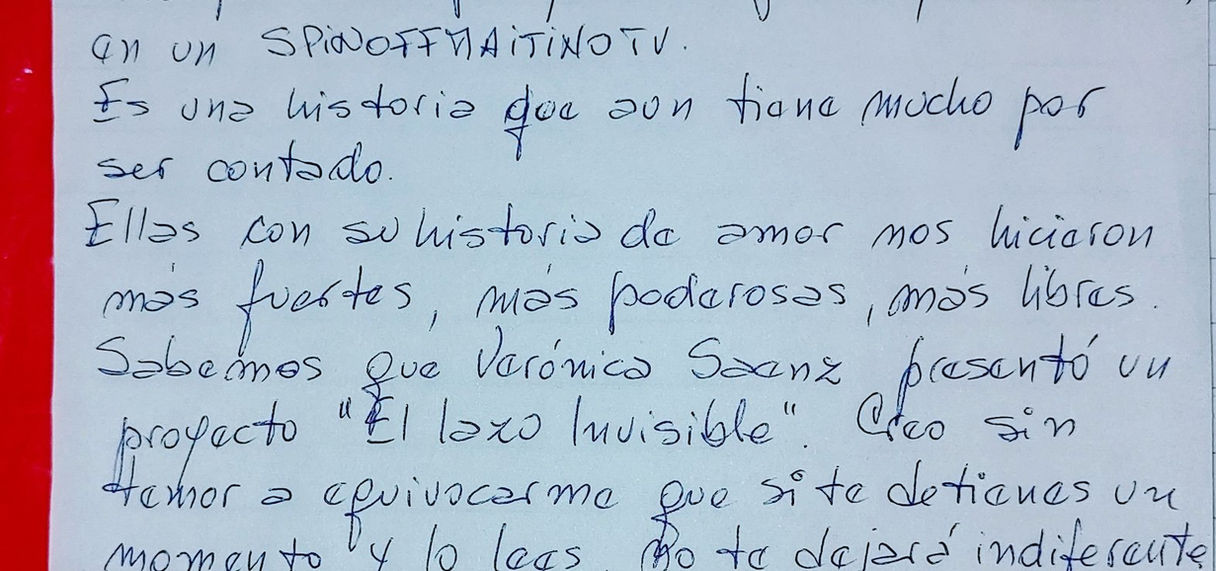 en un SPiNOFFMAiTiNOTV.
Es una historia que aun tiene mucho por
ser contado.
Ellas con su historia de amor nos hicieron
más fuertes, más poderosas, más libres.
Sabemos que Verónica Saenz presentó un
proyecto "El lazo Invisible". Creo sin
temor a equivocarme que si te detienes un
momento y lo lees, no te dejará indiferente